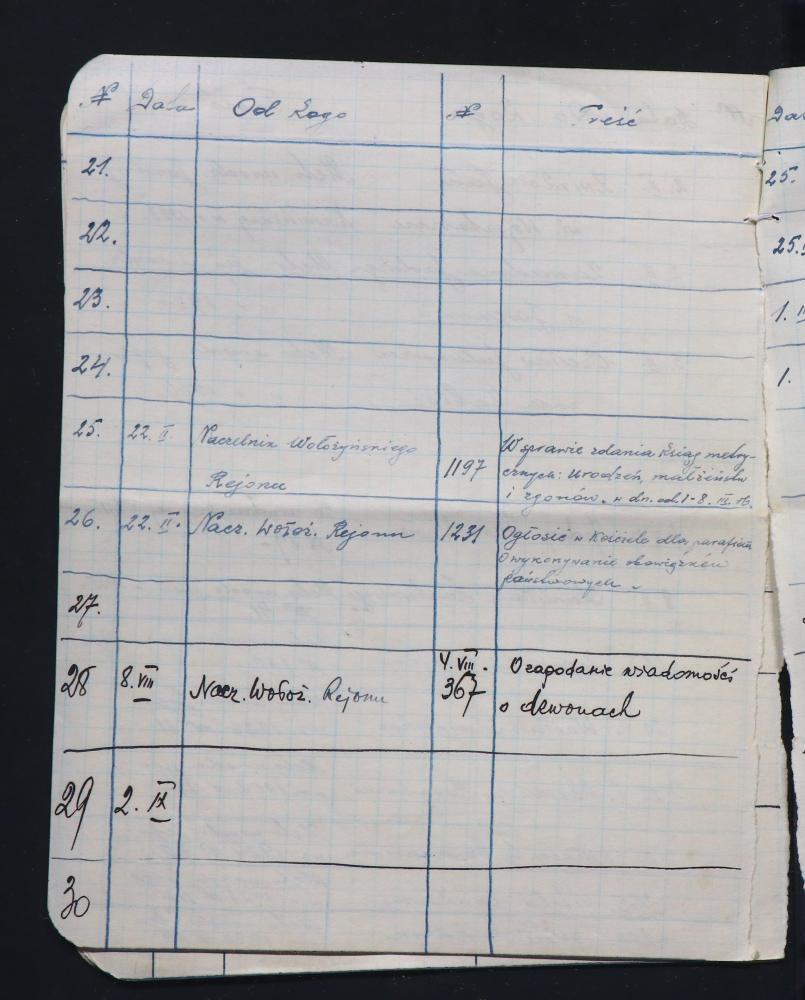 № Data Od kogo № Treść
21.
22.
23.
24.
25. 22. II. Naczelnik Wołożyńskiego
Rejonu
1197
W sprawie zdania ksiąg metry-
cznych: urodzeń, małżeństw
i zgonów. w dn. od. 1-8. III.
26. 22. II. Nacz. Wołoż. Rejonu 1231 Ogłosić w Kościele dla parafian
o wykonywanie obowiązków
państwowych.
27.
28 8. VIII Nacz. Wołoż. Rejonu
4. VIII.
367
O zapodanie wiadomości
o dzwonach
29 2. IX
30
Da
25.
25.
1.
1.